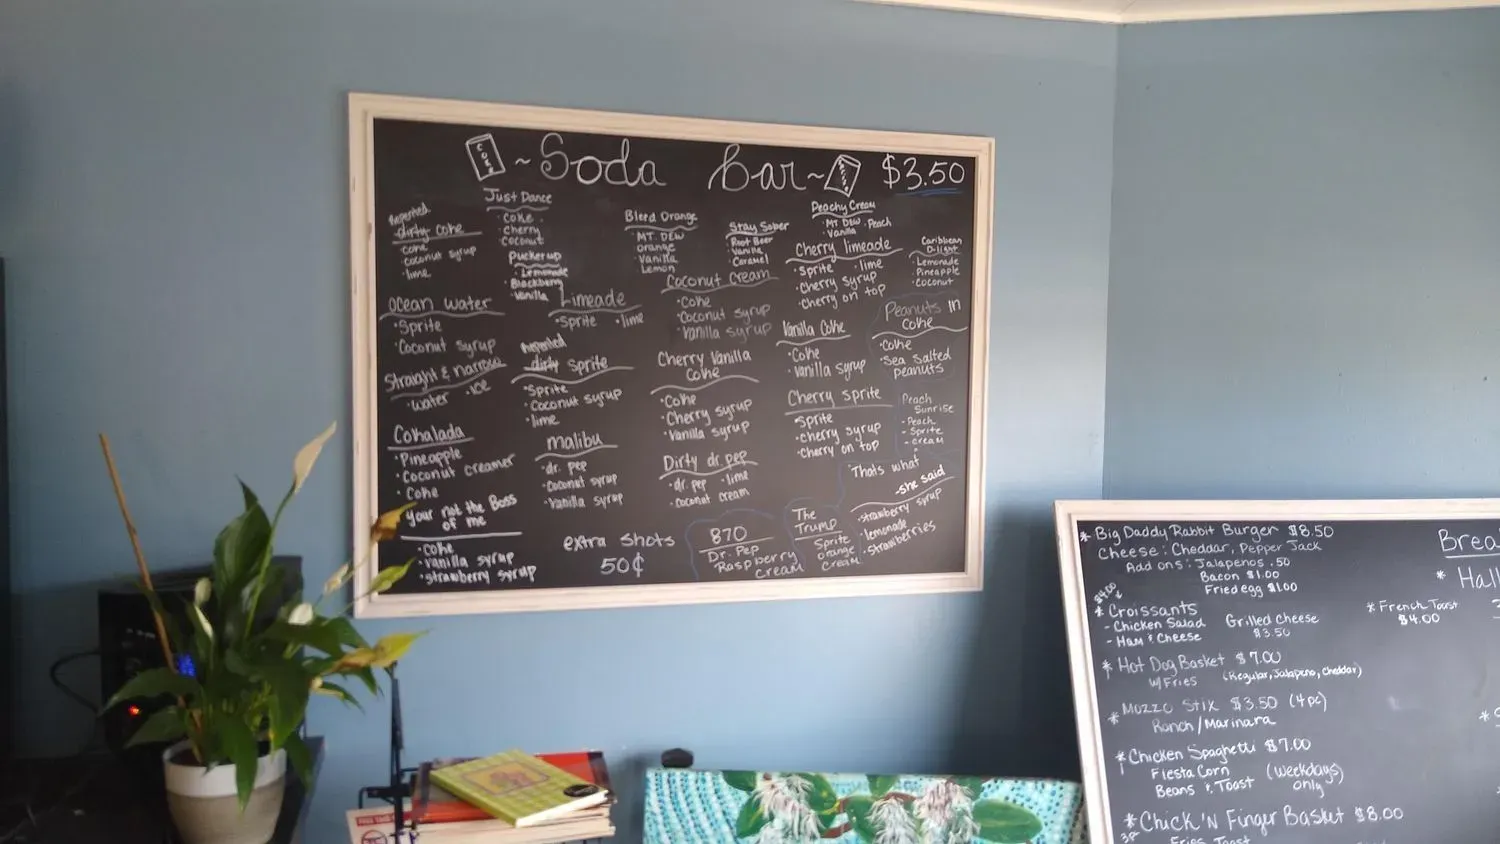 COKE ~ Soda Bar ~ $3.50
Repented
dirty coke
· coke
· coconut syrup
· lime
Just Dance
· coke
· cherry
· coconut
Pucker up
· Lemonade
· Blackberry
· vanilla
Bleed Orange
· MT. DEW
· orange
· Vanilla
· Lemon
Stay Sober
· Root Beer
· Vanilla
· Caramel
Peachy Cream
· MT. DEW · Peach
· Vanilla
Cherry limeade
· Sprite · lime
· Cherry syrup
· Cherry on top
Caribbean
D-light
· Lemonade
· Pineapple
· Coconut
Ocean water
· Sprite
· Coconut syrup
Limeade
· Sprite · lime
Coconut Cream
· Coke
· Coconut syrup
· Vanilla syrup
Vanilla Coke
· Coke
· Vanilla syrup
Peanuts in
Coke
· Coke
· Sea Salted
peanuts
Straight & narrow
· water · ice
Repented
dirty Sprite
· Sprite
· Coconut syrup
· lime
Cherry Vanilla
Coke
· Coke
· Cherry syrup
· Vanilla syrup
Cherry Sprite
· Sprite
· cherry syrup
· Cherry on top
Peach
Sunrise
- Peach
- Sprite
- cream
Cokalada
· Pineapple
· Coconut creamer
· Coke
malibu
· dr. pep
· Coconut syrup
· Vanilla syrup
Dirty dr. pep
· dr. pep · lime
· coconut cream
Thats what
-she said
· strawberry syrup
· lemonade
· strawberries
your not the Boss
of me
· coke
· vanilla syrup
· strawberry syrup
extra shots
50¢
870
Dr. Pep
Raspberry
Cream
The
Trump
Sprite
orange
cream
* Big Daddy Rabbit Burger $8.50
Cheese: Cheddar, Pepper Jack
Add ons: Jalapenos .50
Bacon $1.00
Fried egg $1.00
$4.00
* Croissants
- Chicken Salad
- Ham & Cheese
Grilled Cheese
$3.50
* French Toast
$4.00
Brea
* Hall
* Hot Dog Basket $7.00
w/ Fries (Regular, Jalapeno, Cheddar)
* Mozzo Stix $3.50 (4pc)
Ranch/Marinara
* Chicken Spaghetti $7.00
Fiesta Corn (weekdays
Beans & Toast only)
* Chick 'N Finger Basket $8.00
Fries Toast